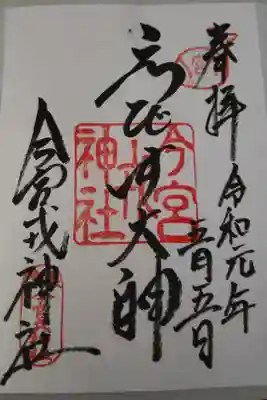 奉拝
令和元年
五月五日
ゑびす大神
今宮戎神社
今宮戎神社